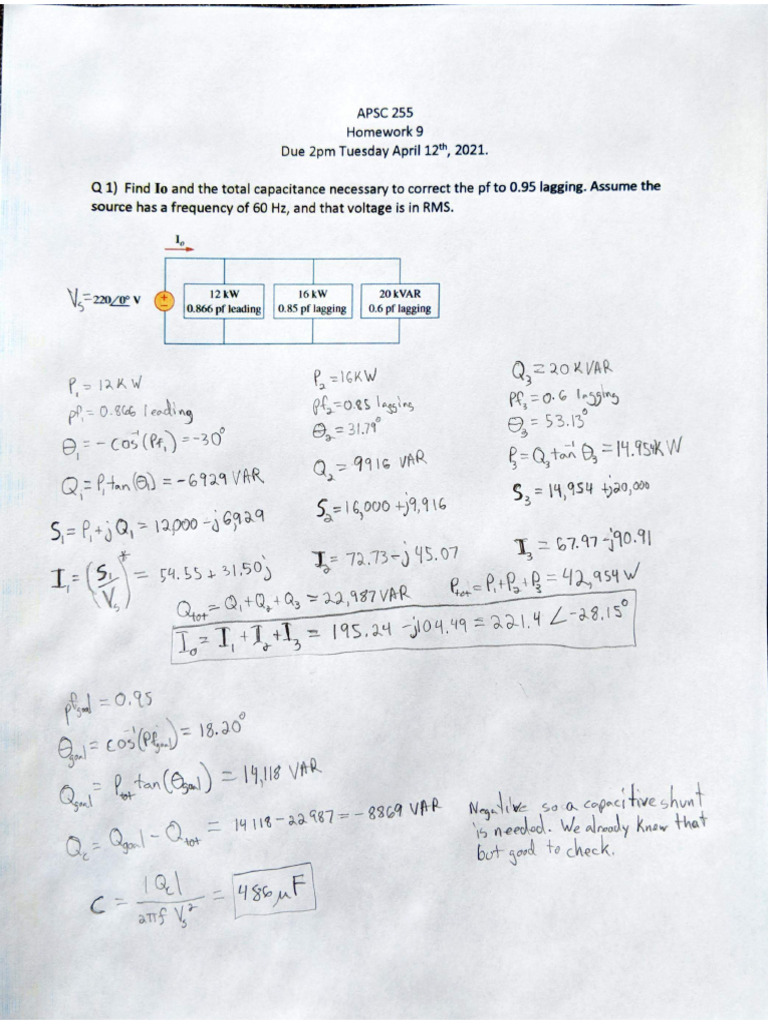 APSC 255
Homework 9
Due 2pm Tuesday April 12th, 2021.
Q 1) Find Io and the total capacitance necessary to correct the pf to 0.95 lagging. Assume the
source has a frequency of 60 Hz, and that voltage is in RMS.
Io
Vs = 220/0° V
+
−
12 kW
0.866 pf leading
16 kW
0.85 pf lagging
20 kVAR
0.6 pf lagging
P1 = 12KW
pf1 = 0.866 leading
θ1 = -cos⁻¹(Pf1) = -30°
Q1 = P1 tan(θ1) = -6929 VAR
S1 = P1 + jQ1 = 12,000 - j6,929
I1 = (S1/Vs)* = 54.55 + 31.50j
P2 = 16KW
pf2 = 0.85 lagging
θ2 = 31.79°
Q2 = 9916 VAR
S2 = 16,000 + j9,916
I2 = 72.73 - j45.07
Q3 = 20KVAR
Pf3 = 0.6 lagging
θ3 = 53.13°
P3 = Q3 tan⁻¹ θ3 = 14.954KW
S3 = 14,954 + j20,000
I3 = 67.97 - j90.91
Qtot = Q1 + Q2 + Q3 = 22,987 VAR
Ptot = P1 + P2 + P3 = 42,954 W
Io = I1 + I2 + I3 = 195.24 - j104.49 = 221.4 ∠-28.15°
pfgoal = 0.95
θgoal = cos⁻¹(Pfgoal) = 18.20°
Qgoal = Ptot tan(θgoal) = 14,118 VAR
Qc = Qgoal - Qtot = 14118 - 22987 = -8869 VAR
C = |Qc| / 2πf Vs² = 486 μF
Negative so a capacitive shunt
is needed. We already know that
but good to check.